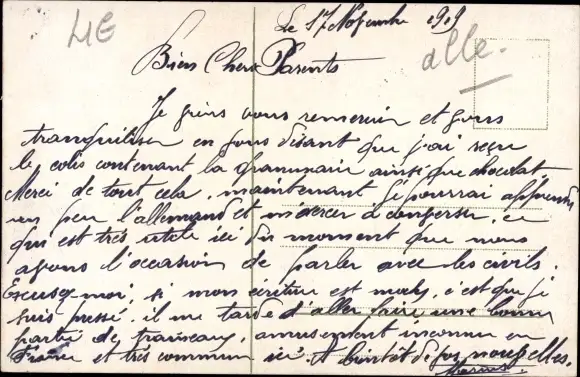 LIE
Le 17 Novembre 1919
alle.
Biens Chers Parents
Je viens vous remercier et vous
tranquiliser en vous disant que j'ai reçu
le colis contenant la grammaire ainsi que chocolat.
Merci de tout cela, maintenant je pourrai apprendre
un peu l'allemand et m'exercer à converser, ce
qui est très utile ici du moment que nous
avons l'occasion de parler avec les civils.
Excusez-moi, si mon écriture est mal, c'est que je
suis pressé. il me tarde d'aller faire une bonne
partie de traineau, amusement inconnu en
France et très commun ici. A bientôt de vos nouvelles.